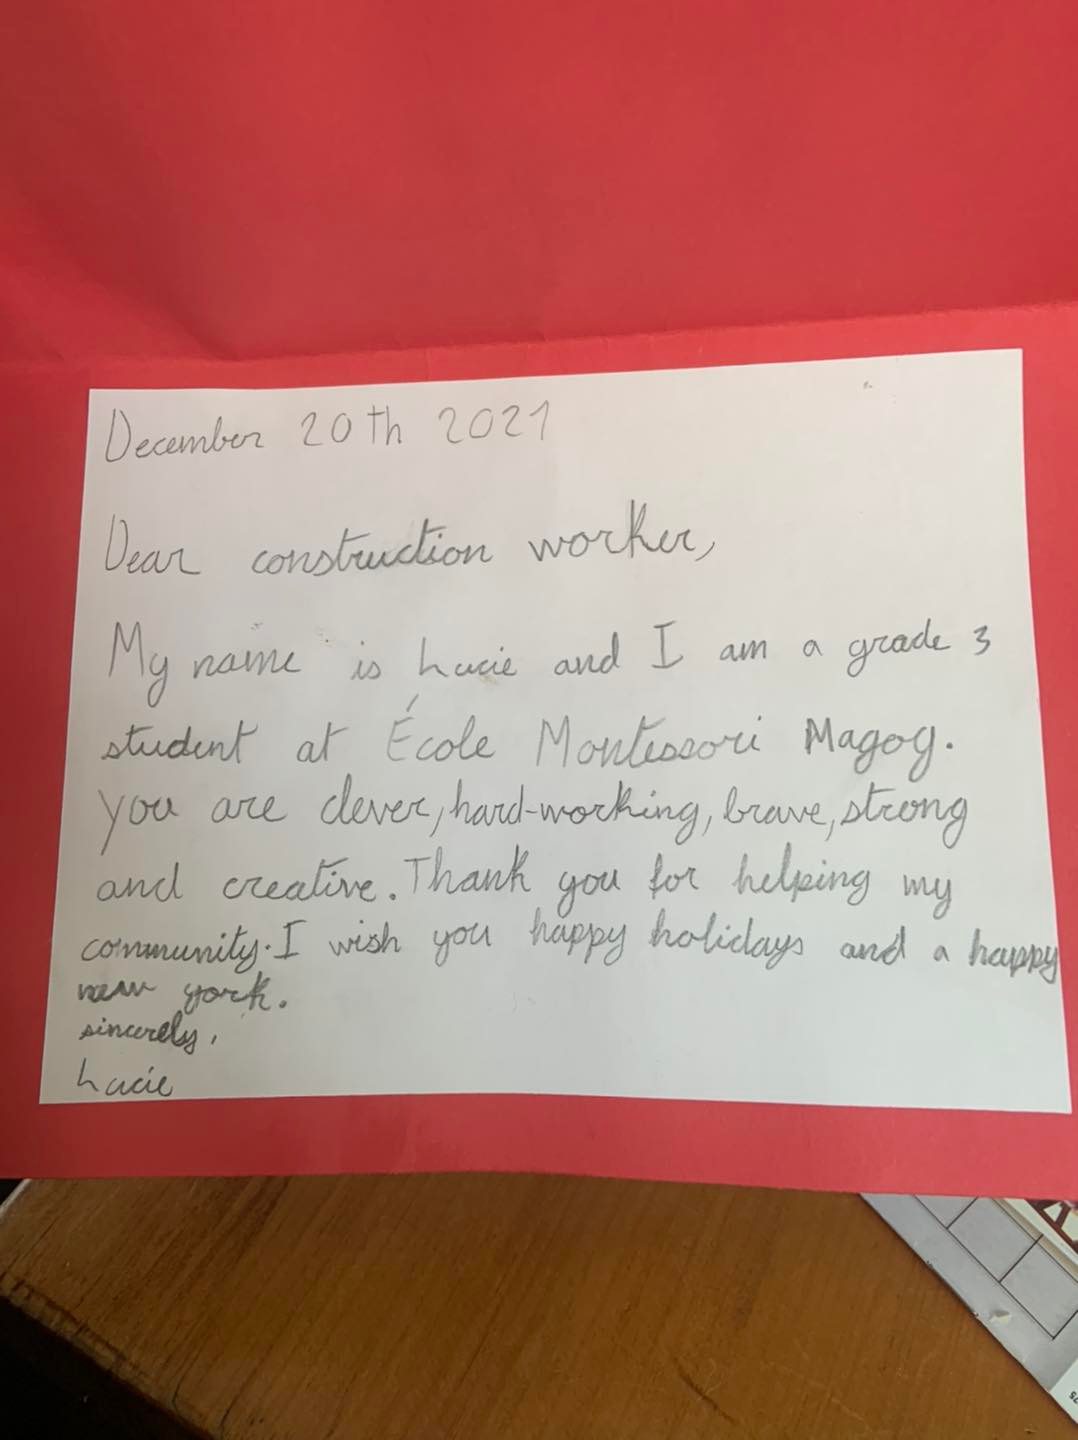 December 20th 2021
Dear construction worker,
My name is Lucie and I am a grade 3
student at École Montessori Magog.
you are clever, hard-working, brave, strong
and creative. Thank you for helping my
community. I wish you happy holidays and a happy
new york.
sincerely,
Lucie
75